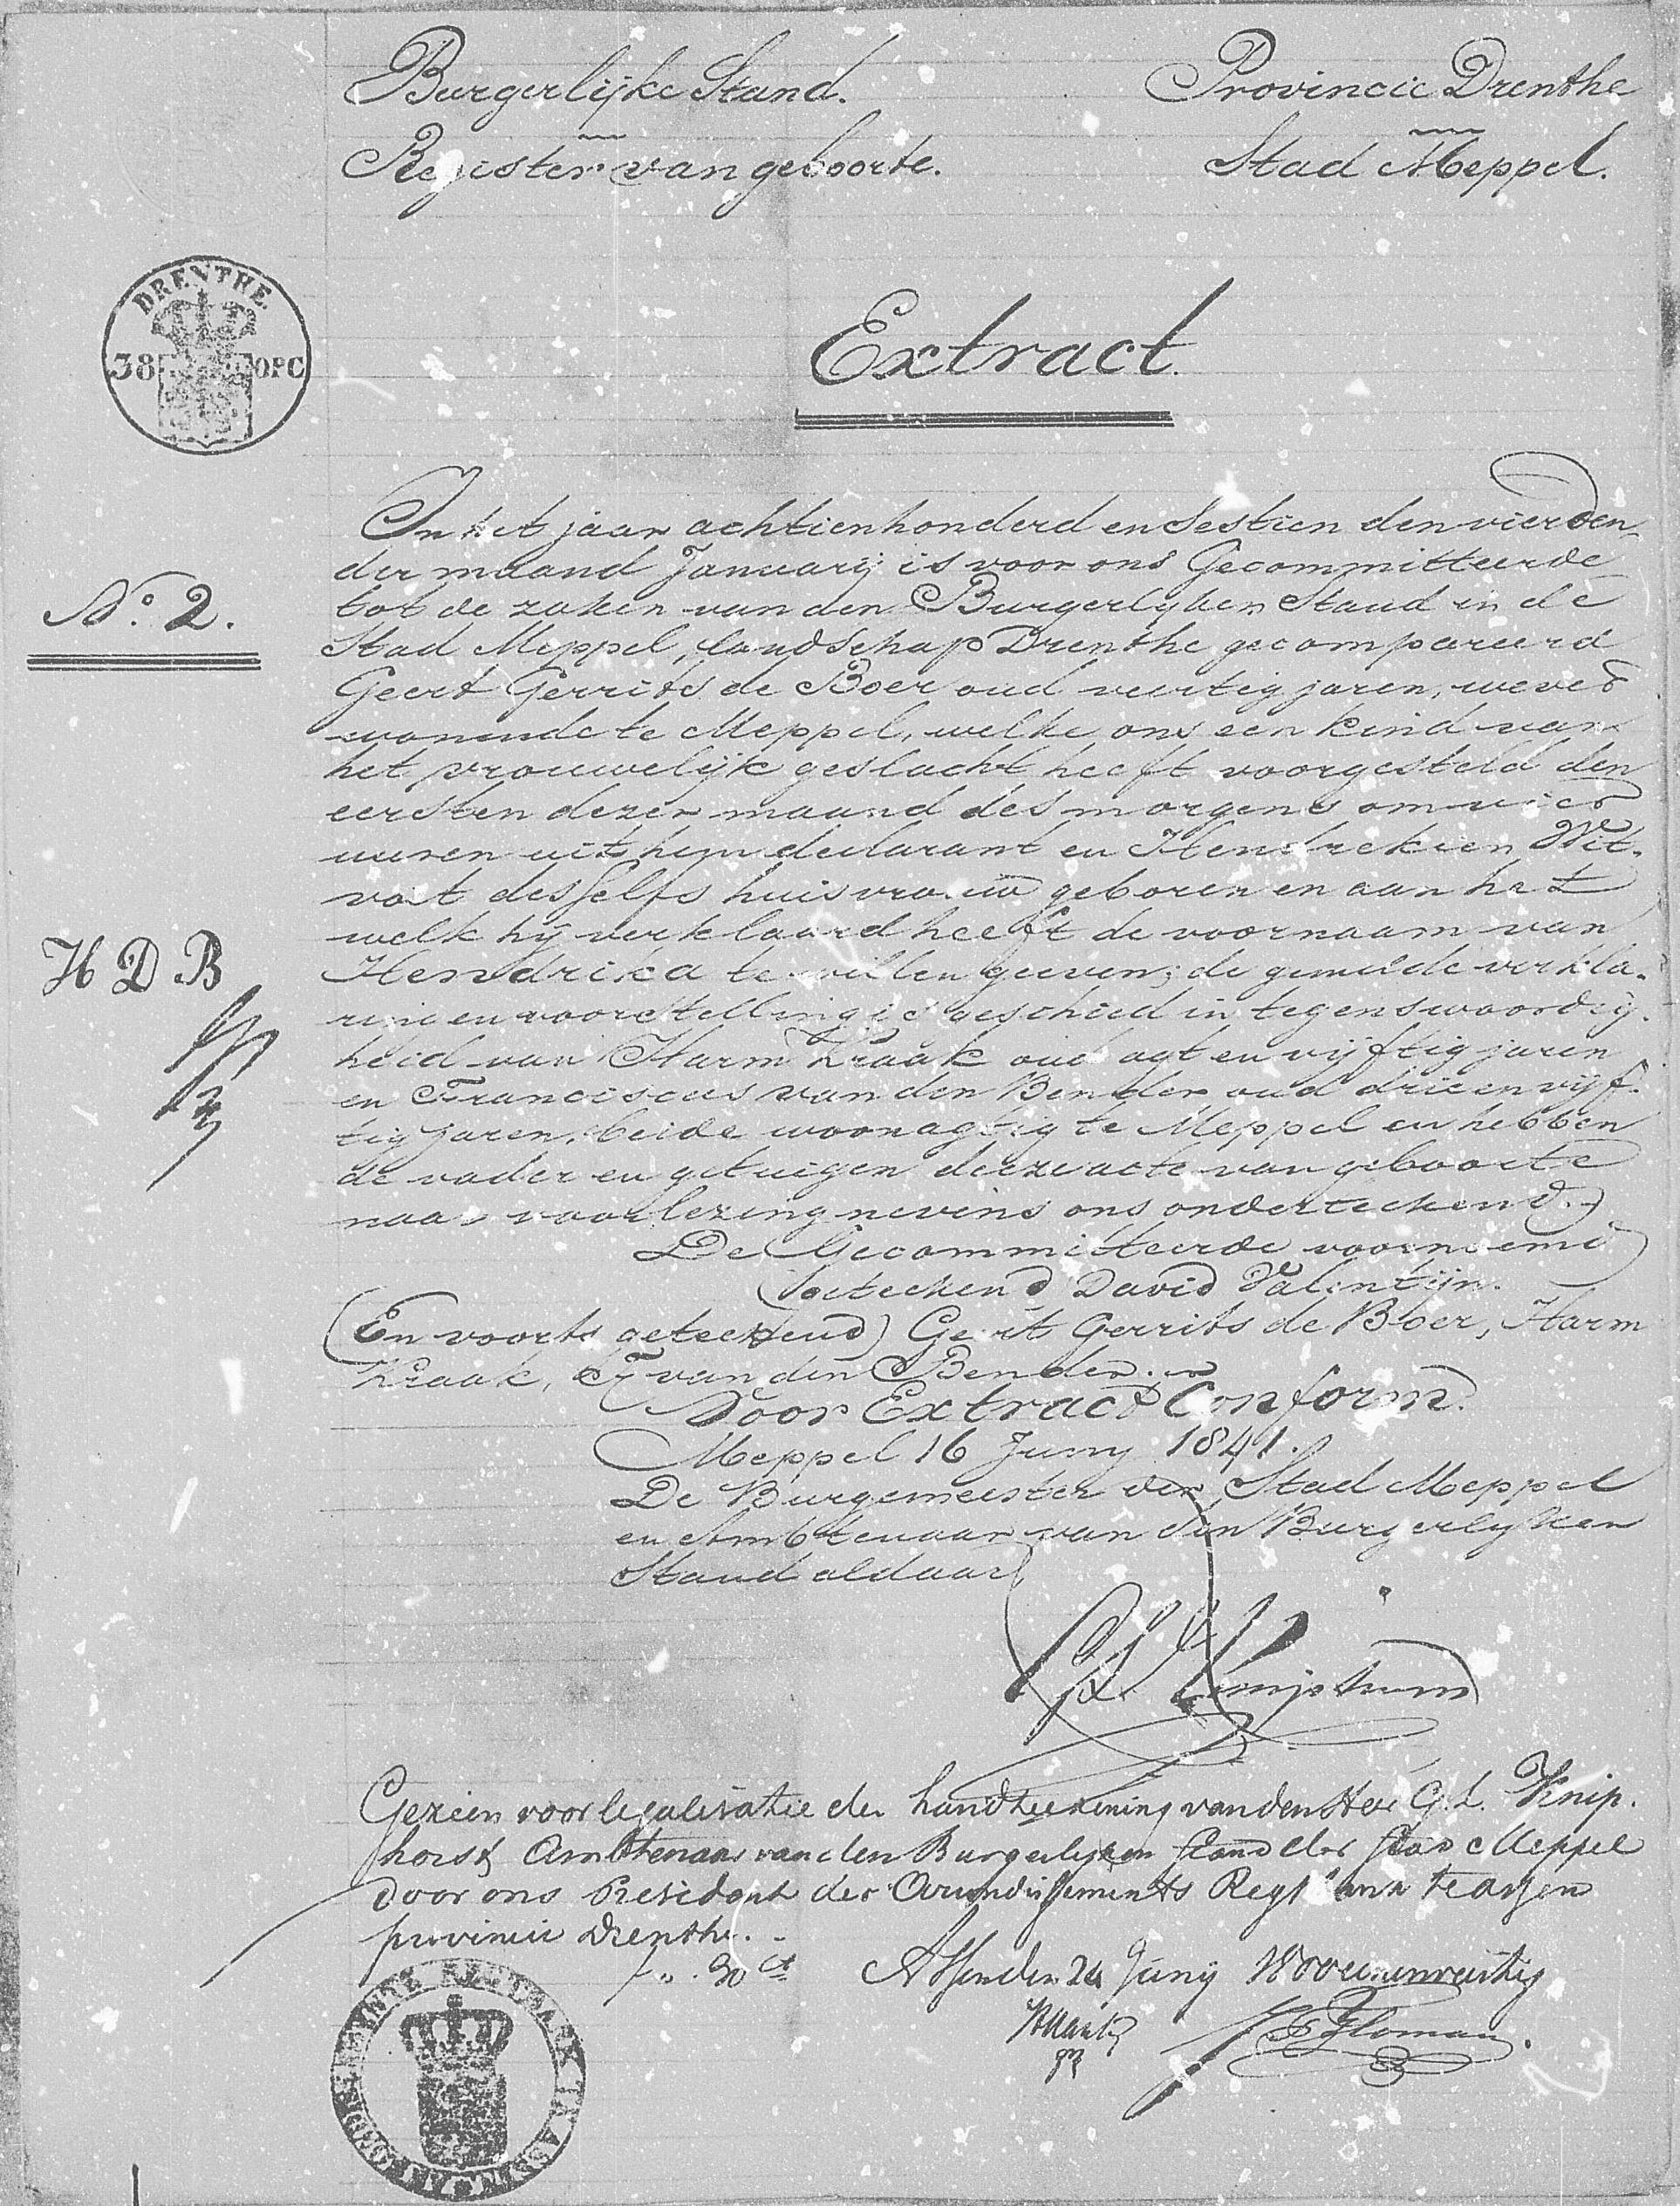 Burgerlijke Stand. Provincie Drenthe
Register van geboorte. Stad Meppel.
DRENTHE
38 OPC
Extract.
In het jaar achtienhonderd en Sestien den vierden
der maand Januarij is voor ons Gecommitteerde
N.o 2.
tot de zaken van den Burgerlyken Staud in de
Stad Meppel, landschap Drenthe gecompareerd
Geert Gerrits de Boer oud veertig jaren, wever
wonende te Meppel, welke ons een kind van
het vrouwelijk geslacht heeft voorgesteld den
eersten dezer maand des morgens om vier
uuren uit hem declarant en Hendrekien Wit-
voet desselfs huisvrouw geboren en aan het
welk hij verklaard heeft de voornaam van
H D B
Hendrika te willen geeven; de gemelde verkla-
ring en voorstelling is geschied in tegenswoordig-
heid van Harm Kraak oud agt en vijftig jaren
en Franciscus van den Bender oud drie en vijf-
tig jaren, beide woonagtig te Meppel en hebben
de vader en getuigen deeze acte van geboorte
naa voorlezing nevens ons onderteekend.
De Gecommitteerde voornoemd
(Geteekend) David Valentijn.
(En voorts geteekend) Geert Gerrits de Boer, Harm
Kraak, F van den Bender.
Voor Extract Conform.
Meppel 16 Juny 1841.
De Burgemeester der Stad Meppel
en Ambtenaar van den Burgerlyken
Stand aldaar
G L Kniphorst
Gezien voor legalisatie der handteekening van den Heer G. L. Knip-
horst Ambtenaar van den Burgerlijken stand der stad Meppel
door ons President der Arrondissements Regtbank te Assen
provincie Drenthe.
f „. 30 ct Assen den 24 Junij 18 een en veertig
Homan.